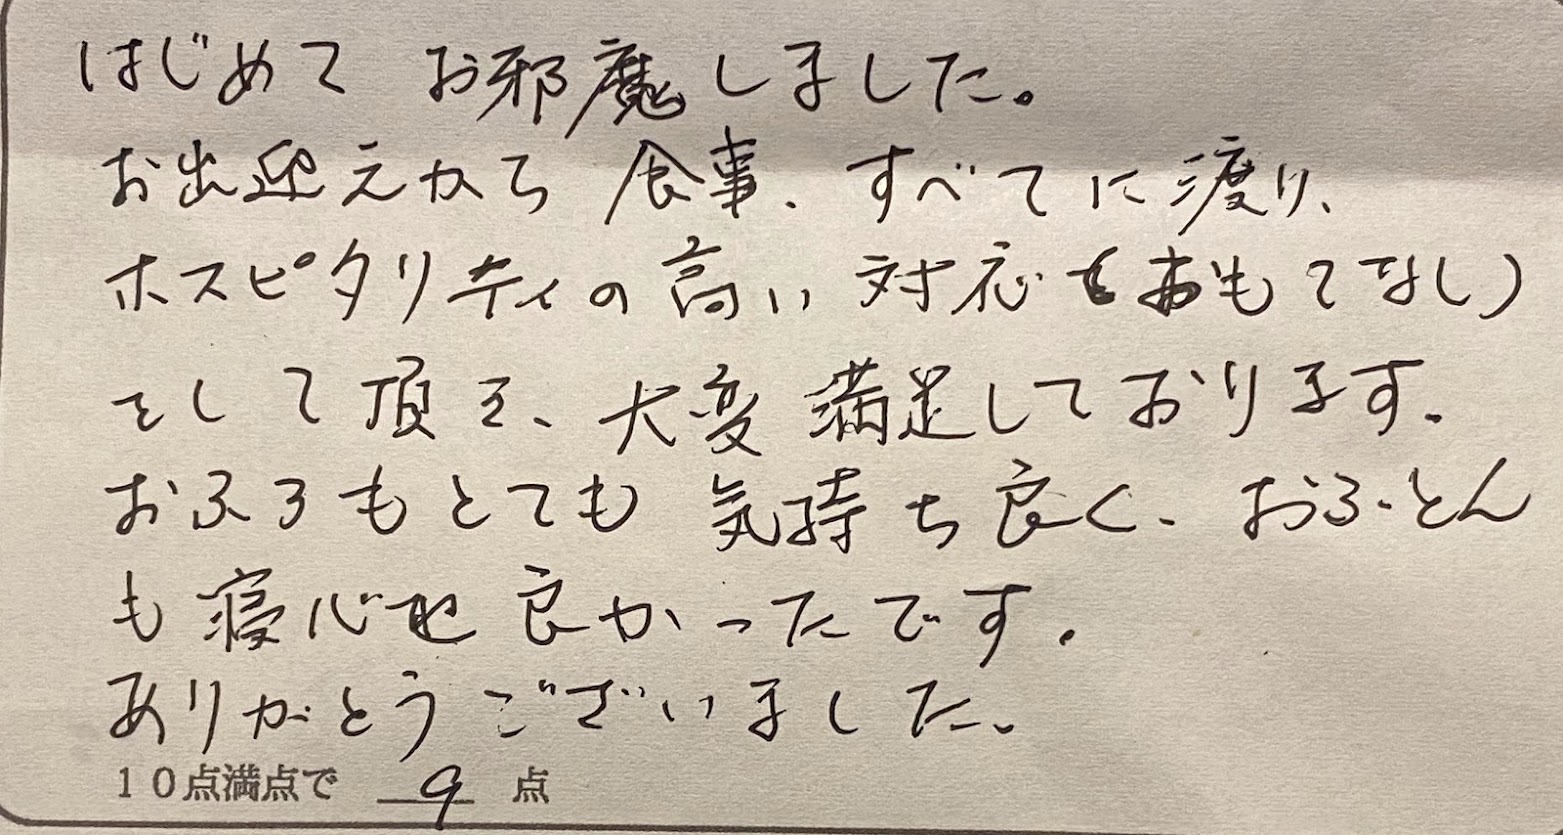 はじめて お邪魔しました。
お出迎えから 食事、すべてに渡り、
ホスピタリティの高い 対応をおもてなし)
として頂き、大変 満足しております。
おふろもとても 気持ち良く、おふとん
も寝心地良かったです。
ありがとうございました。
10点満点で 9 点